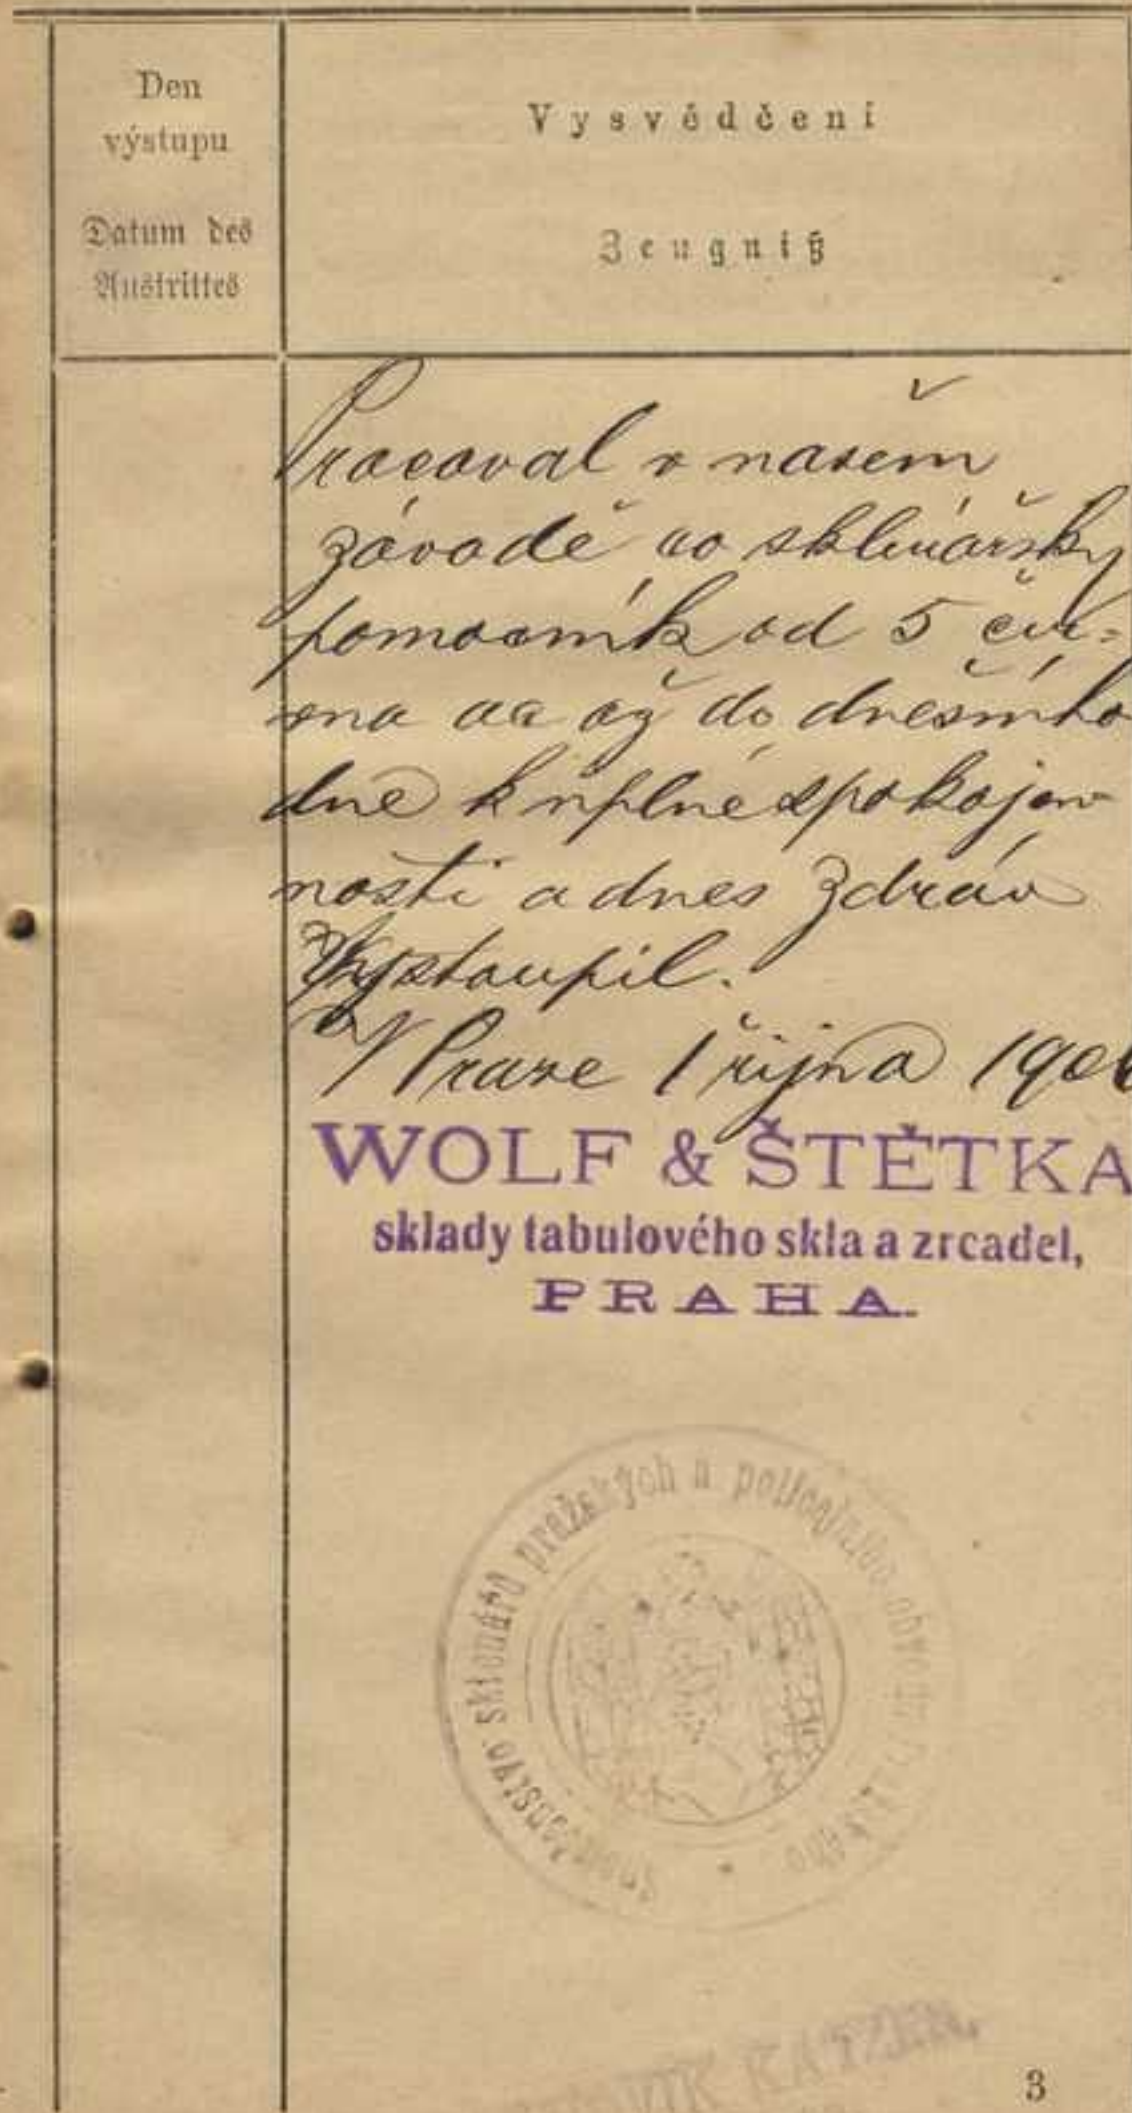 Den
výstupu
Datum des
Austrittes
Vysvědčení
Zeugniß
Pracoval v našem
závodě co sklenářský
pomocník od 5 čer=
vna až do dnešního
dne k úplné spokojen=
nosti a dnes zdráv
Vystoupil.
V Praze 1 října 190
WOLF & ŠTĚTKA
sklady tabulového skla a zrcadel,
PRAHA.
Společenstvo sklenářů pražských a policejního obvodu pražského
3